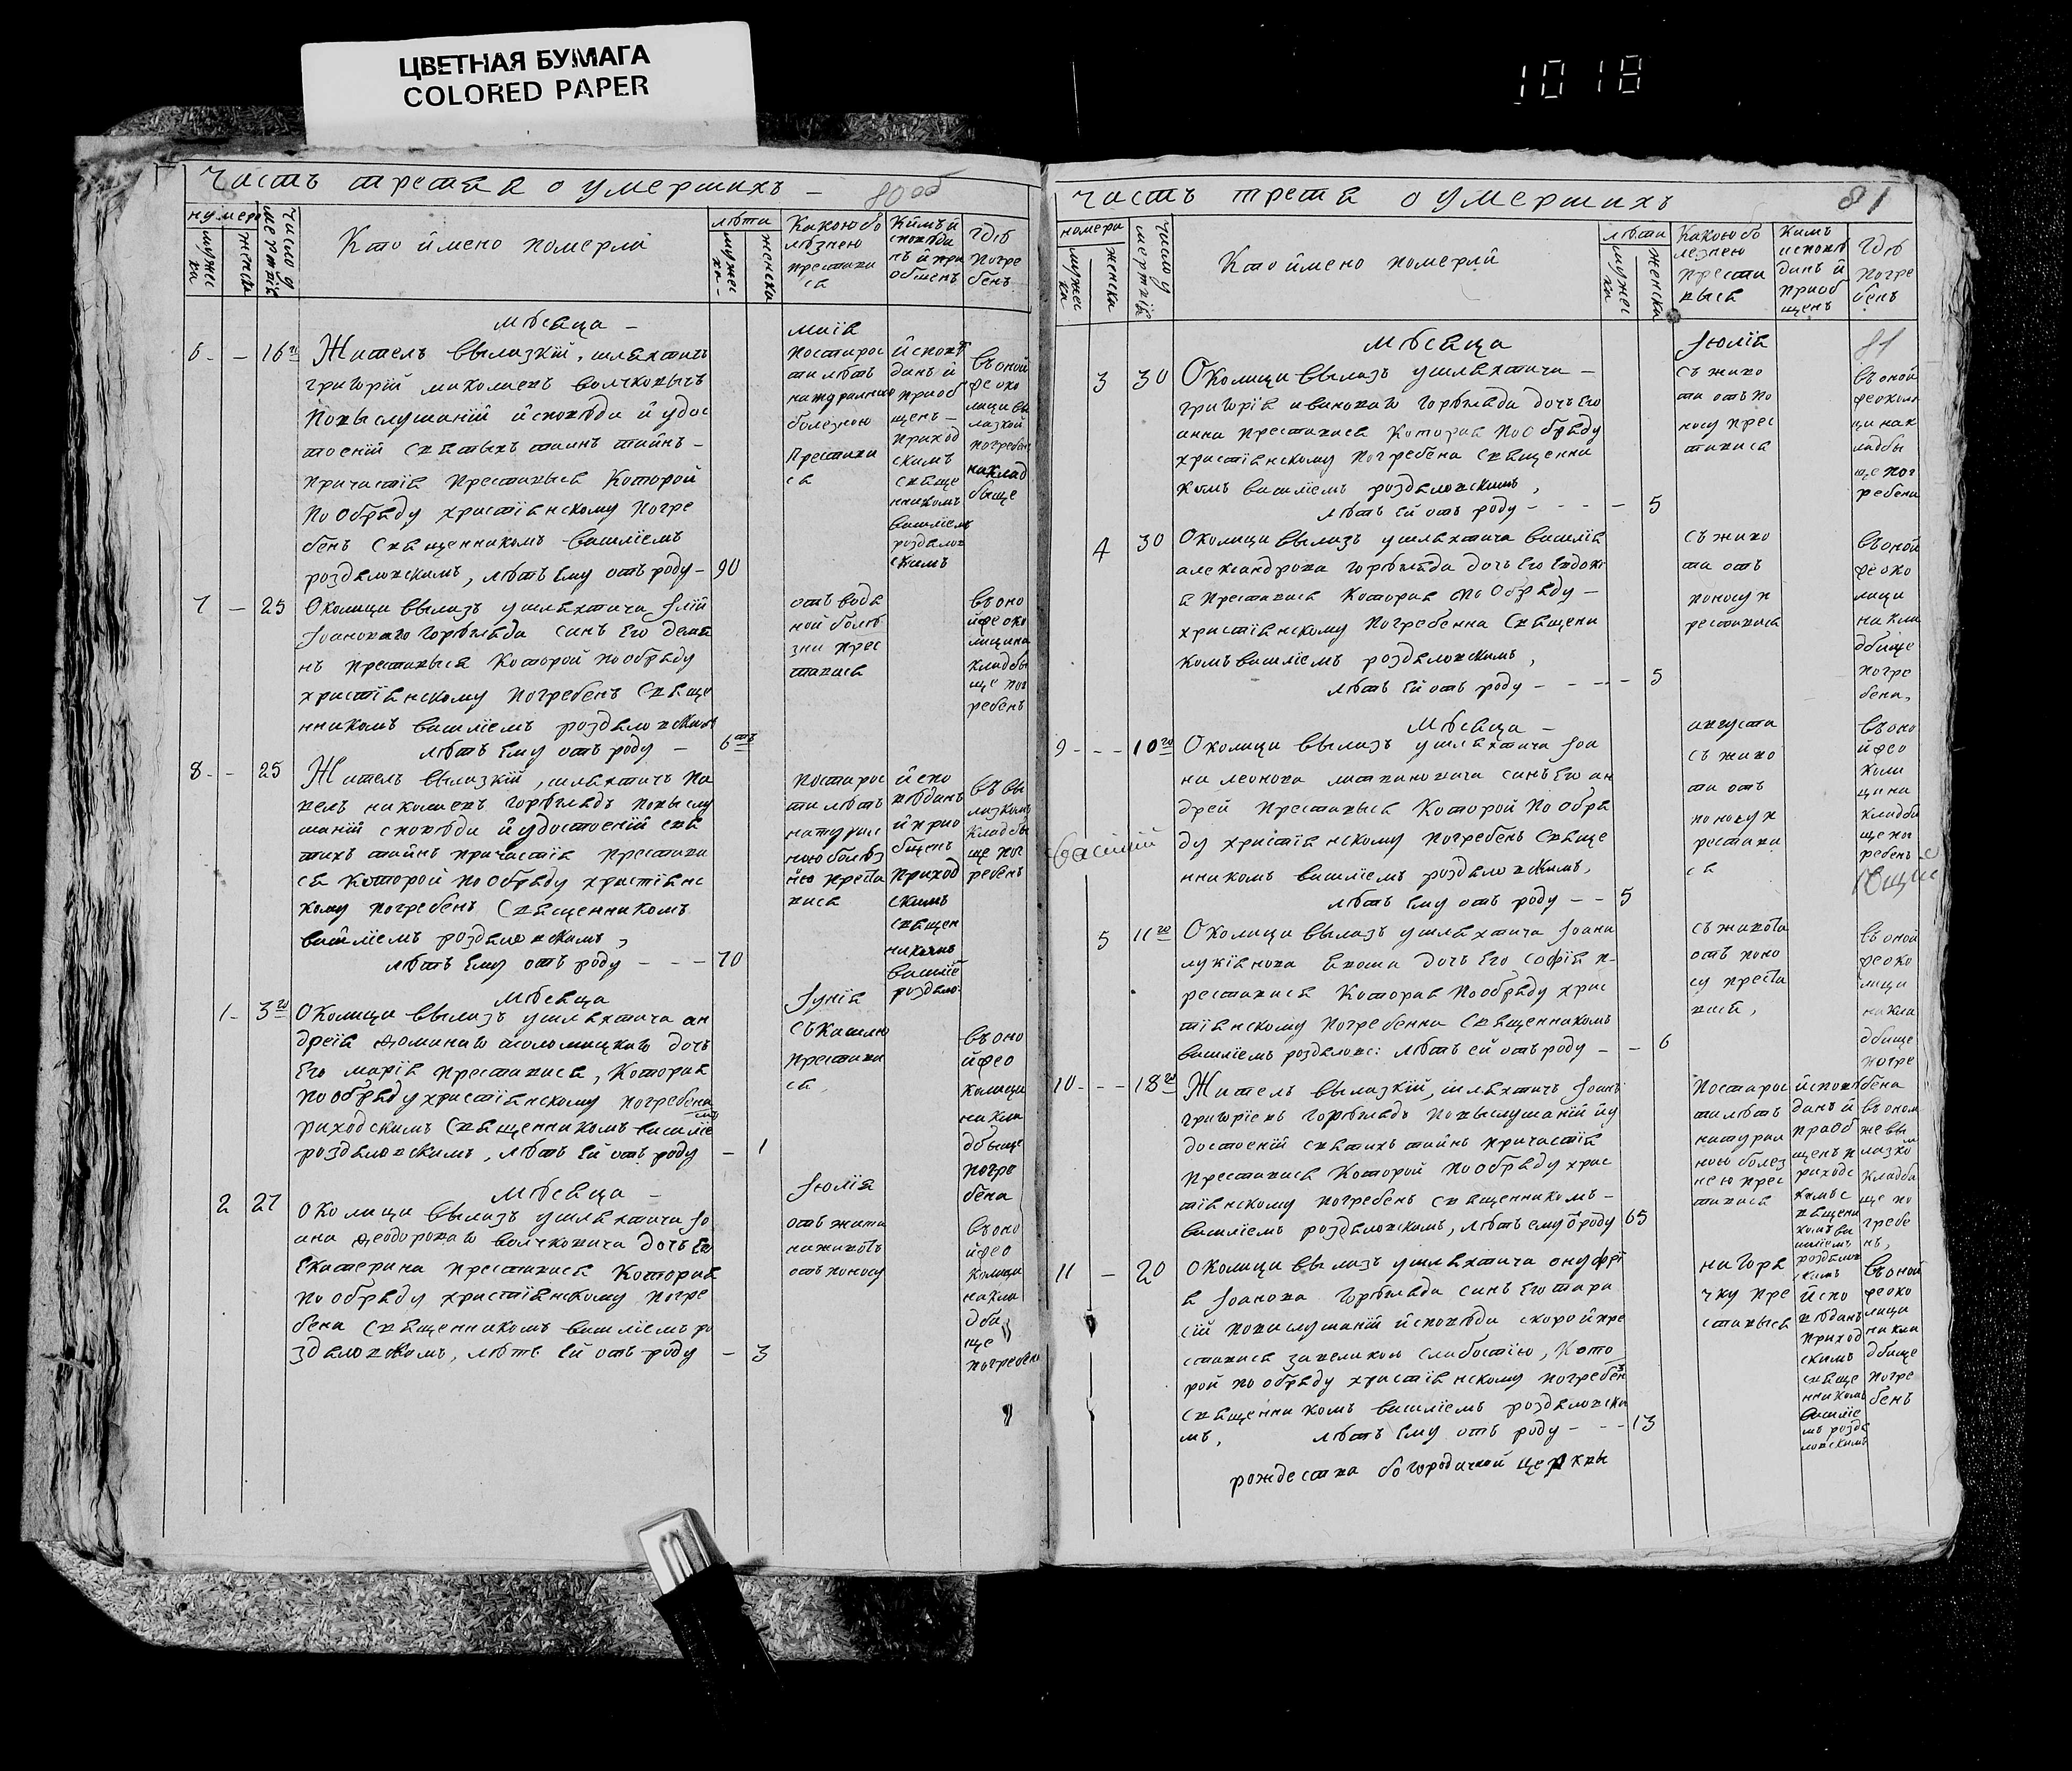 ЦВЕТНАЯ БУМАГА
COLORED PAPER
1018
часть третяя о умершихъ –
80 об
нумера
мужеска
женска
число умертвія
Кто имено померлй
лѣта
мужеска
женска
Какою бо
лѣзнею
престави
ся
Кимъ и
сповѣда
нъ и при
общенъ
гдѣ
погре
бенъ
мѣсяца –
маія
6 – – 16го
Житель вылазкій, шляхтичъ
григорій миколаевъ волчковичъ
повыслушаній исповѣди й удос
тоеній святыхъ таинъ тайнъ –
причастія преставися Которой
по обряду христіянскому погре
бенъ священникомъ василіемъ
роздяловскимъ, лѣтъ ему отъ роду – 90
постарос
ти лѣтъ
натуралною
болезною
Престави
ся
йсповѣ
данъ й
приоб
щенъ –
приход
скимъ
свяще
нникомъ
василіемъ
роздялов
скимъ
въ оной
же око
лицы вы
лазкой
погребен
наклад
быще
7 – 25
Околицы вылазъ ушляхтича Іліи
Іоановаго горѣгляда синъ его демя
нъ преставися Которой пообряду
христіянскому погребенъ свяще
нникомъ василіемъ роздяловскимъ
лѣтъ ему отъ роду – 6ть
отъ водя
ной болѣ
зни прес
тавися
въ оно
йже око
лицына
кладбы
ще пог
ребенъ
8 – – 25
Житель вылазкій, шляхтичъ па
велъ никошевъ горѣглядъ повыслу
шаній сповѣди й удостоеній свя
тихъ тайнъ причастія престави
ся Которой по обряду христіянс
кому погребенъ священникомъ
василіемъ роздяловскимъ,
лѣтъ ему отъ роду – – – 70
постарос
ти лѣтъ
натурал
ною болѣз
нію преста
вися
й спо
вѣданъ
й прио
бщенъ
приход
скимъ
священ
никомъ
василіе
роздяло:
въ вы
лазкомъ
кладбы
ще пог
ребенъ
Мѣсяца
Іунія
1 – 3го
Околицы вылазъ ушляхтича ан
дрея доминаго шоломицкаго дочъ
его марія преставися, Которая
по обряду христіянскому погребена
риходскимъ священникомъ василіе
роздяловскимъ, лѣтъ ей отъ роду – 1
съ кашлю
престави
ся
въ оно
йже о
колицы
на кла
дбыще
погре
бена
Мѣсяца –
Іюлія
2 27
Околицы вылазъ ушляхтича Іо
ана феодороваго волчковича дочъ его
Екатерина преставися Которая
по обряду христіянскому погре
бена священникомъ василіемъ ро
здяловскимъ, лѣтъ ей отъ роду – 3
отъ поносу
въ оно
йже о
колицы
на кла
дби
ще
погребена
часть третя о умершихъ
81
номера
мужеска
женска
число умертвія
Кто имено померлй
лѣта
мужеска
женска
Какою бо
лезнею
преста
выся
Кимъ
исповѣ
данъ й
приоб
щенъ
гдѣ
погре
бенъ
Мѣсяца
Іюлія
81
3 30
Околицы вылазъ ушляхтича –
григорія ивановаго горѣгляда дочъ его
анна преставися Которая по обряду
христіянскому погребена священни
комъ василіемъ роздяловскимъ,
лѣтъ ей отъ роду – – – – 5
съ живо
та отъ по
носу прес
тавися
въ оной
же околи
цы на к
ладбы
ще пог
ребена
4 30
Околицы вылазъ ушляхтича василія
александрова горѣгляда дочъ его евдокі
я преставися Которая по обряду –
христіянскому погребенна священи
комъ василіемъ роздяловскимъ,
лѣтъ ей отъ роду – – – – 5
съ живо
та отъ
поносу п
реставися
въ оной
же око
лицы
на кла
дбище
погре
бена,
Мѣсяца –
августа
9 – – – 10го
Околицы вылазъ ушляхтича Іоа
на леонова литвиновича синъ его ан
дрей преставыся Которой по обря
ду христіянскому погребенъ свяще
нникомъ василіемъ роздяловскимъ,
лѣтъ ему отъ роду – – 5
съ живо
та отъ
поносу п
рестави
ся
въ оно
йже о
коли
цы на
кладби
ще по
ребенъ
василий
5 11го
Околицы вылазъ ушляхтича Іоана
дочъ его софія п
реставися Которая пообряду хрис
тіянскому погребенна священникомъ
василіемъ роздяловс: лѣтъ ей отъ роду – – 6
съ живота
отъ поно
су преста
вися,
въ оной
же око
лицы
на кла
дбище
погре
бена
10 – – – 18го
Житель вылазкій, шляхтичъ Іоанъ
григоріевъ горѣглядъ повыслушаній й у
достоеній святихъ тайнъ причастія
преставися Которой пообряду хрис
тіянскому погребенъ священникомъ –
василіемъ роздяловскимъ, лѣтъ ему о роду 65
Постарос
ти лѣтъ
натурал
ною болез
нею прес
тавися
йсповѣ
данъ й
приоб
щенъ п
риходс
кимъ с
вящени
комъ ва
силіемъ
роздялов
скимъ
въ оном
же вы
лазко
кладби
ще по
гребе
нъ,
11 – 20
Околицы вылазъ ушляхтича онуфрі
я Іоанова горѣгляда синъ его тара
сій повислушаній йсповѣди скорой пре
ставися за великою слабостію, Кото
рой по обряду христіянскому погребен
священникомъ василіемъ роздяловски
мъ, лѣтъ ему отъ роду – – – 13
на горя
чку пре
ставыся
йспо
вѣданъ
приход
скимъ
свяще
нникомъ
василіе
мъ роздя
ловскимъ
въ оной
же око
лици
на кла
дбище
погре
бенъ
рождества богородичной церквы